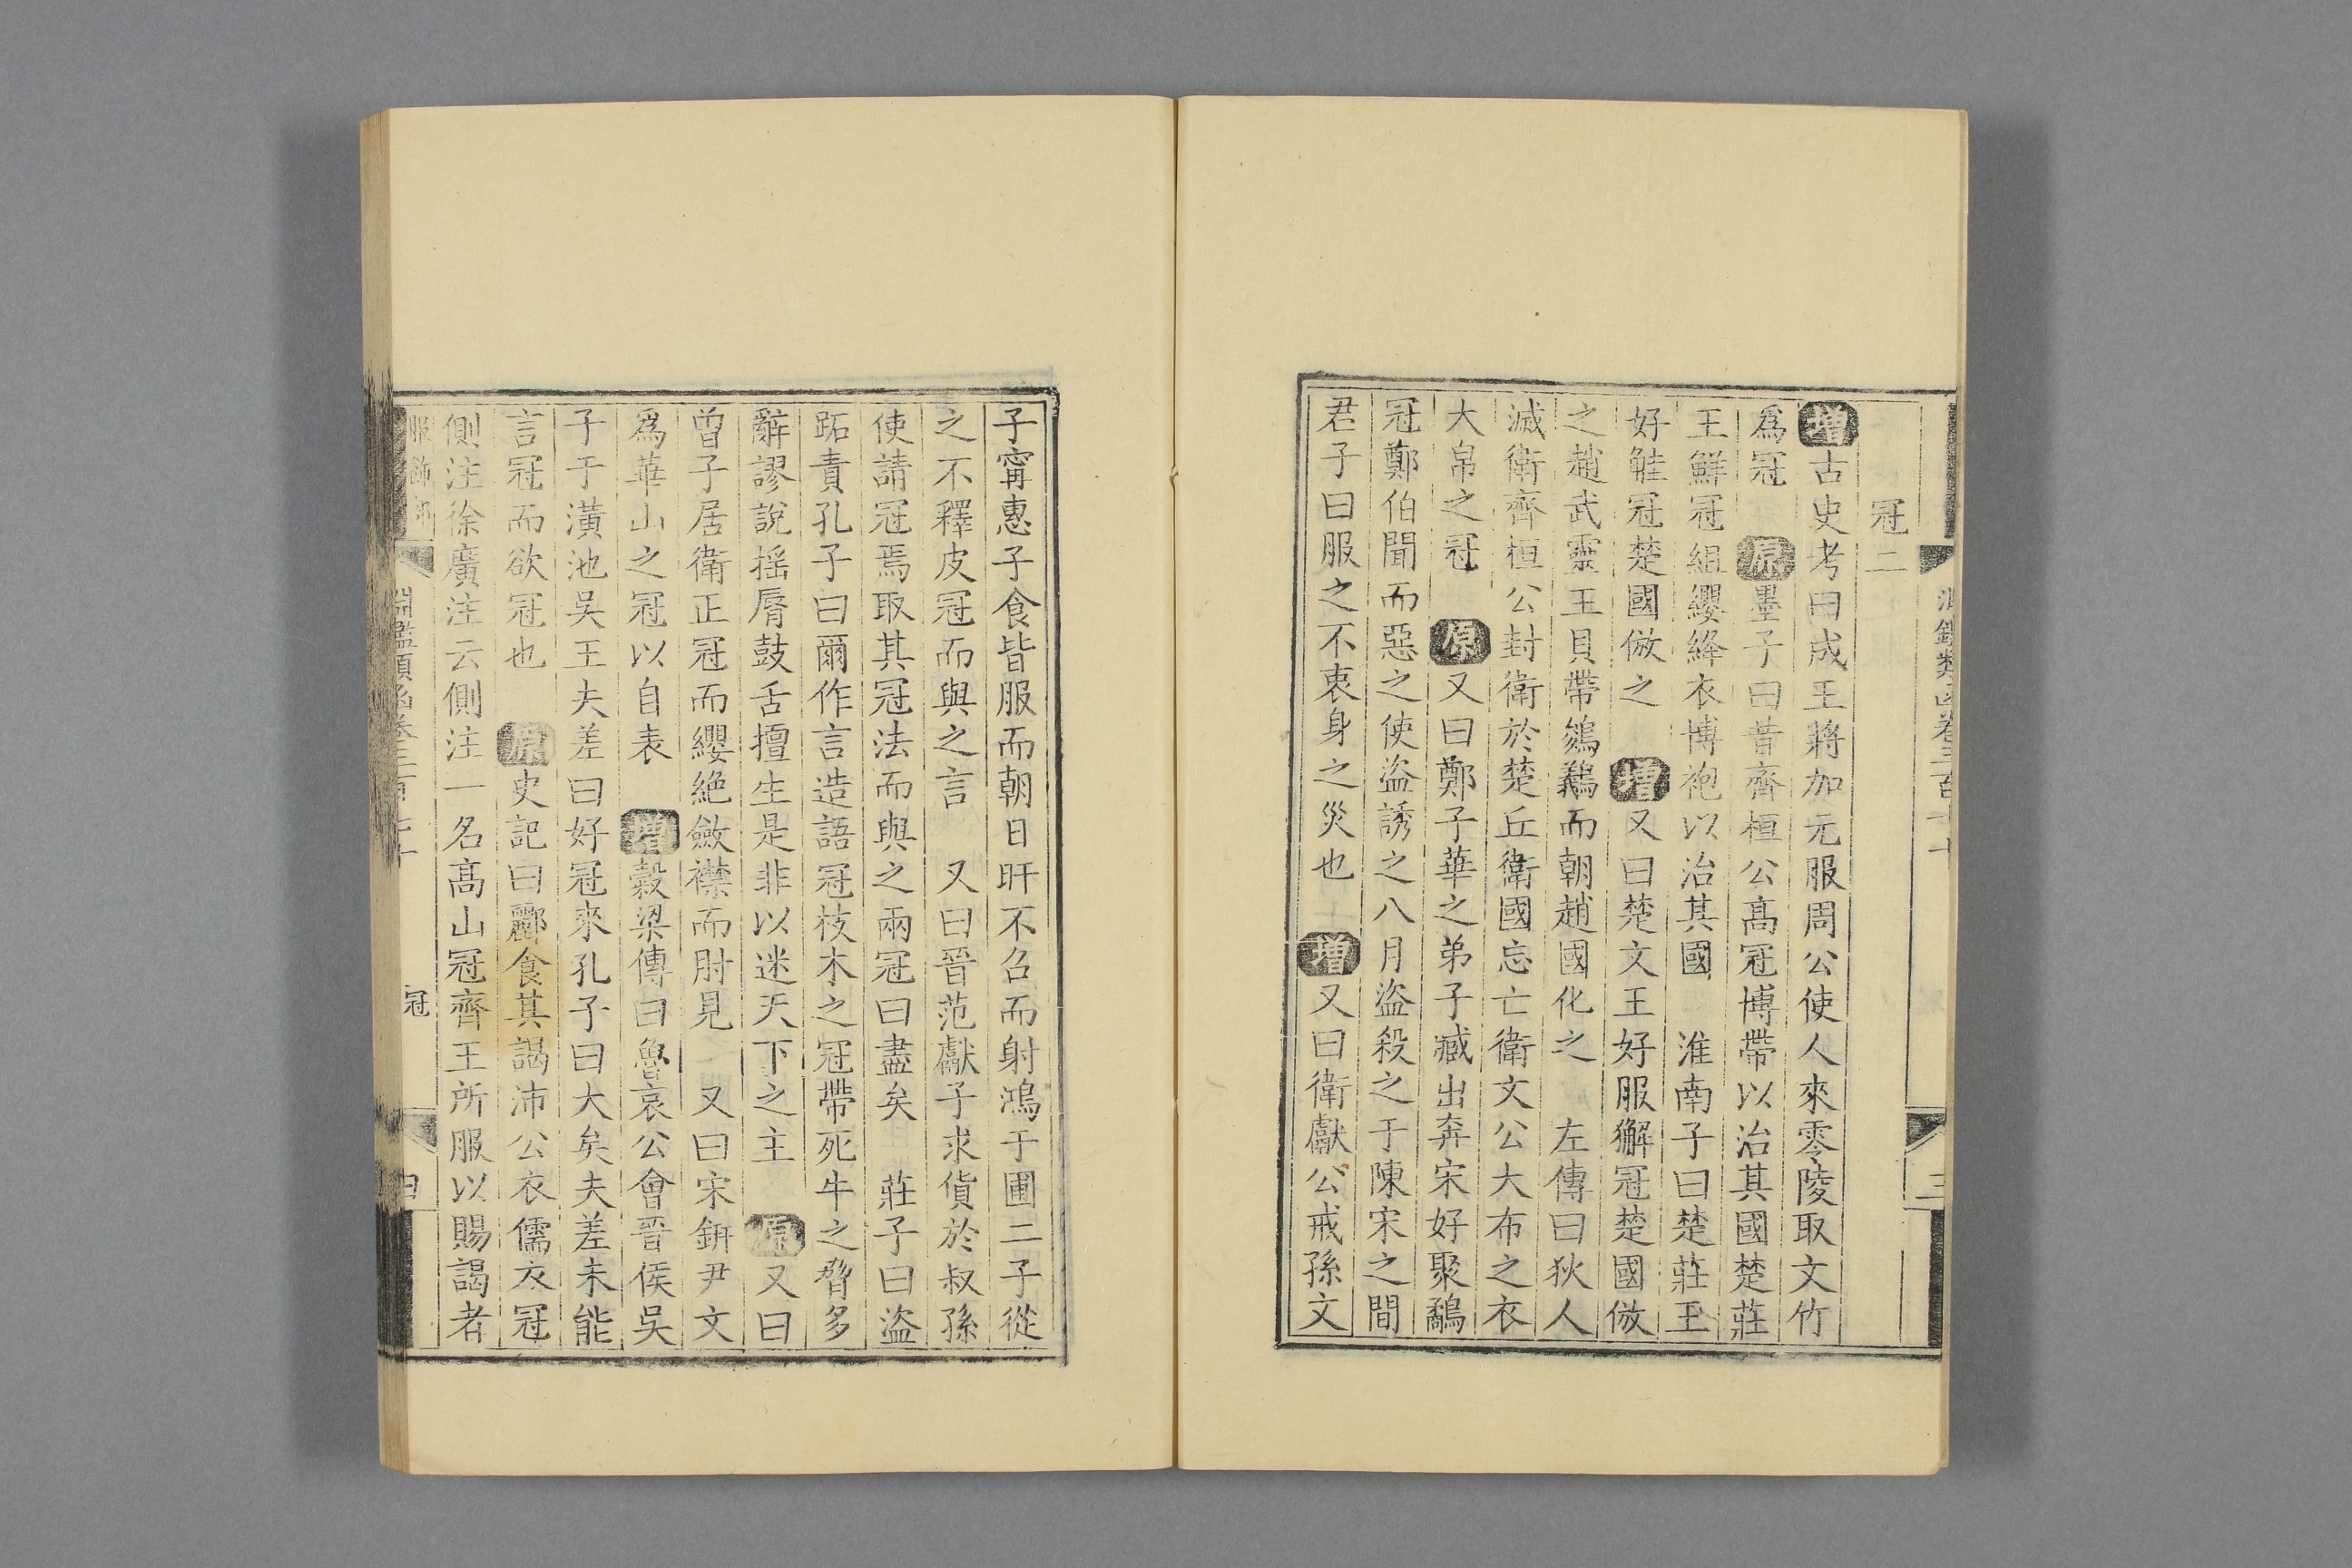 冠二
增古史考曰成王將加元服周公使人來零陵取文竹
爲冠　原墨子曰昔齊桓公高冠博帶以治其國楚莊
王鮮冠組纓絳衣博袍以治其國　淮南子曰楚莊王
好觟冠楚國倣之　增又曰楚文王好服獬冠楚國倣
之趙武靈王貝帶鵕鸃而朝趙國化之　左傳曰狄人
滅衛齊桓公封衛於楚丘衛國忘亡衛文公大布之衣
大帛之冠　原又曰鄭子華之弟子臧出奔宋好聚鷸
冠鄭伯聞而惡之使盜誘之八月盜殺之于陳宋之間
君子曰服之不衷身之災也　增又曰衛獻公戒孫文
子甯惠子食皆服而朝日旰不召而射鴻于圃二子從
之不釋皮冠而與之言　又曰晉范獻子求貨於叔孫
使請冠焉取其冠法而與之兩冠曰盡矣　莊子曰盜
跖責孔子曰爾作言造語冠枝木之冠帶死牛之脅多
辭謬說摇脣鼓舌擅生是非以迷天下之主　原又曰
曾子居衛正冠而纓絶斂襟而肘見　又曰宋鈃尹文
爲華山之冠以自表　增穀梁傳曰魯哀公會晉侯吳
子于潢池吳王夫差曰好冠來孔子曰大矣夫差未能
言冠而欲冠也　原史記曰酈食其謁沛公衣儒衣冠
側注徐廣注云側注一名高山冠齊王所服以賜謁者
冠